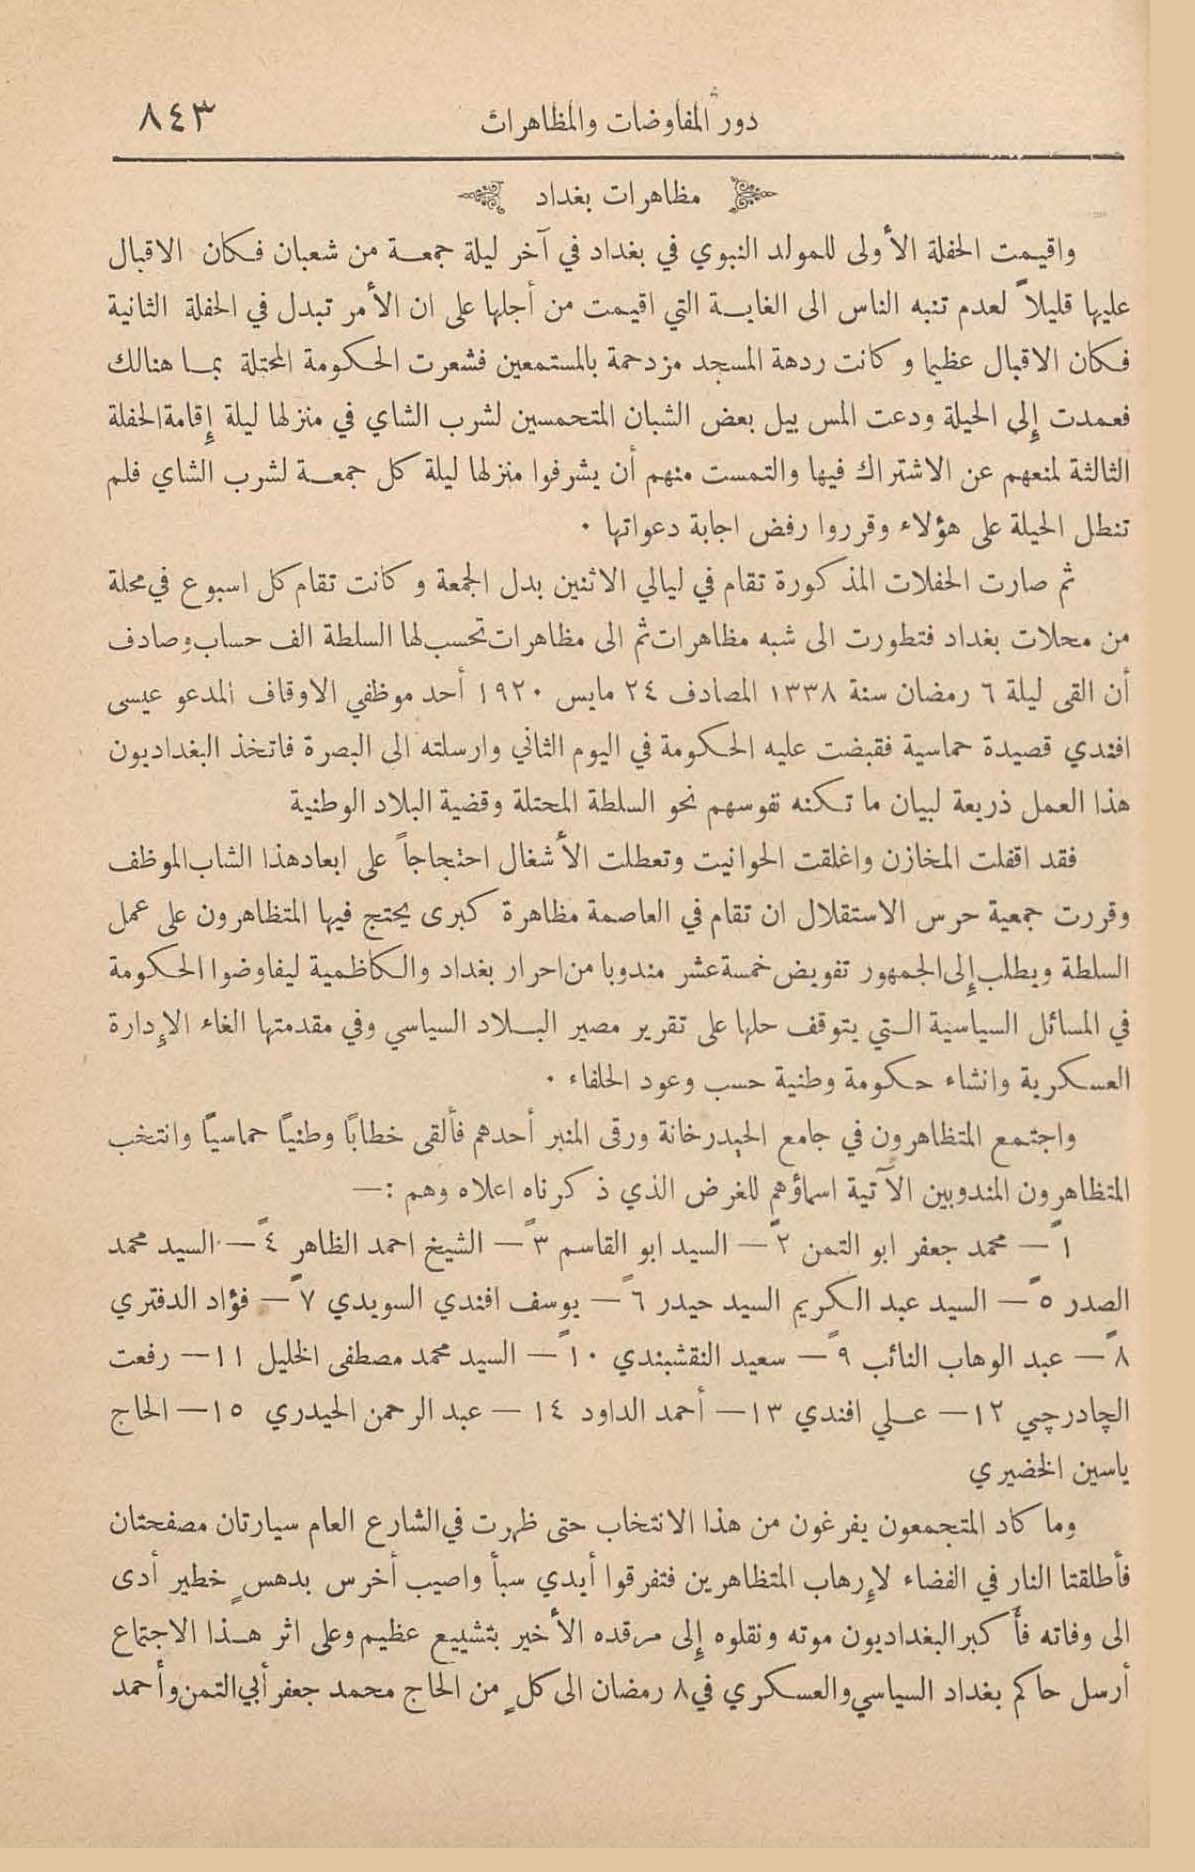 دور المفاوضات والمظاهرات ٨٤٣
مظاهرات بغداد
واقيمت الحفلة الأولى للمولد النبوي في بغداد في آخر ليلة جمعة من شعبان فكان الاقبال
عليها قليلاً لعدم تنبه الناس الى الغاية التي اقيمت من أجلها على ان الأمر تبدل في الحفلة الثانية
فكان الاقبال عظيما وكانت ردهة المسجد مزدحمة بالمستمعين فشعرت الحكومة المحتلة بما هنالك
فعمدت إلى الحيلة ودعت المس بيل بعض الشبان المتحمسين لشرب الشاي في منزلها ليلة إقامة الحفلة
الثالثة لمنعهم عن الاشتراك فيها والتمست منهم أن يشرفوا منزلها ليلة كل جمعة لشرب الشاي فلم
تنطل الحيلة على هؤلاء وقرروا رفض اجابة دعواتها .
ثم صارت الحفلات المذكورة تقام في ليالي الاثنين بدل الجمعة وكانت تقام كل اسبوع في محلة
من محلات بغداد فتطورت الى شبه مظاهرات ثم الى مظاهرات تحسب لها السلطة الف حساب وصادف
أن القى ليلة ٦ رمضان سنة ١٣٣٨ المصادف ٢٤ مايس ١٩٢٠ أحد موظفي الاوقاف المدعو عيسى
افندي قصيدة حماسية فقبضت عليه الحكومة في اليوم الثاني وارسلته الى البصرة فاتخذ البغداديون
هذا العمل ذريعة لبيان ما تكنه نفوسهم نحو السلطة المحتلة وقضية البلاد الوطنية
فقد اقفلت المخازن واغلقت الحوانيت وتعطلت الأشغال احتجاجاً على ابعاد هذا الشاب الموظف
وقررت جمعية حرس الاستقلال ان تقام في العاصمة مظاهرة كبرى يحتج فيها المتظاهرون على عمل
السلطة ويطلب إلى الجمهور تفويض خمسة عشر مندوبا من احرار بغداد والكاظمية ليفاوضوا الحكومة
في المسائل السياسية التي يتوقف حلها على تقرير مصير البلاد السياسي وفي مقدمتها الغاء الإدارة
العسكرية وانشاء حكومة وطنية حسب وعود الحلفاء .
واجتمع المتظاهرون في جامع الحيدرخانة ورقى المنبر أحدهم فألقى خطاباً وطنياً حماسياً وانتخب
المتظاهرون المندوبين الآتية اسماؤهم للغرض الذي ذكرناه اعلاه وهم :—
١ً — محمد جعفر ابو التمن ٢ً — السيد ابو القاسم ٣ً — الشيخ احمد الظاهر ٤ً — السيد محمد
الصدر ٥ً — السيد عبد الكريم السيد حيدر ٦ً — يوسف افندي السويدي ٧ً — فؤاد الدفتري
٨ً — عبد الوهاب النائب ٩ً — سعيد النقشبندي ١٠ً — السيد محمد مصطفى الخليل ١١ — رفعت
الچادرچي ١٢ — علي افندي ١٣ — أحمد الداود ١٤ — عبد الرحمن الحيدري ١٥ — الحاج
ياسين الخضيري
وما كاد المتجمعون يفرغون من هذا الانتخاب حتى ظهرت في الشارع العام سيارتان مصفحتان
فأطلقتا النار في الفضاء لإرهاب المتظاهرين فتفرقوا أيدي سبأ واصيب أخرس بدهسٍ خطير أدى
الى وفاته فأكبر البغداديون موته ونقلوه إلى مرقده الأخير بتشييع عظيم وعلى اثر هذا الاجتماع
أرسل حاكم بغداد السياسي والعسكري في ٨ رمضان الى كلٍ من الحاج محمد جعفر أبي التمن وأحمد